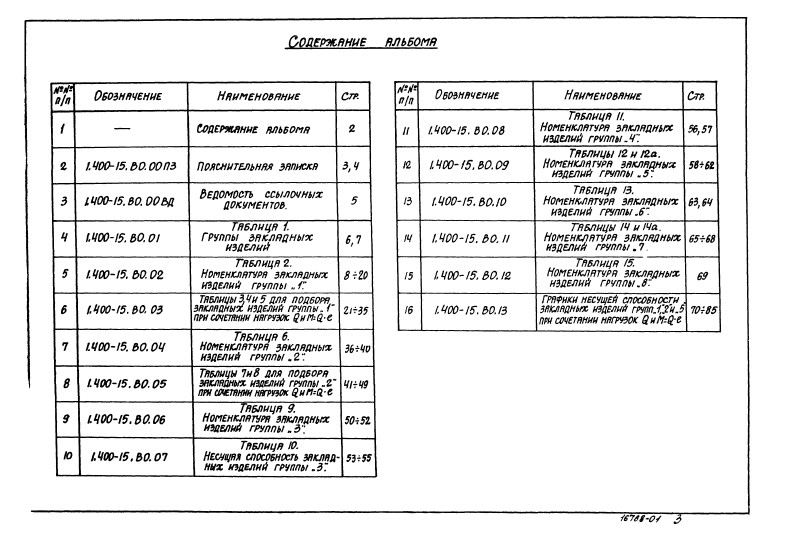 Содержание альбома
№№ п/п Обозначение Наименование Стр.
1 — Содержание альбома 2
2 1.400-15.В0.00ПЗ Пояснительная записка 3,4
3 1.400-15.В0.00ВД Ведомость ссылочных
документов. 5
4 1.400-15.В0.01 Таблица 1.
Группы закладных
изделий 6,7
5 1.400-15.В0.02 Таблица 2.
Номенклатура закладных
изделий группы „1". 8÷20
6 1.400-15.В0.03 Таблицы 3,4 и 5 для подбора
закладных изделий группы „1"
при сочетании нагрузок Q и M=Q·e 21÷35
7 1.400-15.В0.04 Таблица 6.
Номенклатура закладных
изделий группы „2". 36÷40
8 1.400-15.В0.05 Таблицы 7 и 8 для подбора
закладных изделий группы „2"
при сочетании нагрузок Q и M=Q·e 41÷49
9 1.400-15.В0.06 Таблица 9.
Номенклатура закладных
изделий группы „3". 50÷52
10 1.400-15.В0.07 Таблица 10.
Несущая способность заклад-
ных изделий группы „3". 53÷55
№№ п/п Обозначение Наименование Стр.
11 1.400-15.В0.08 Таблица 11.
Номенклатура закладных
изделий группы „4". 56,57
12 1.400-15.В0.09 Таблицы 12 и 12а.
Номенклатура закладных
изделий группы „5". 58÷62
13 1.400-15.В0.10 Таблица 13.
Номенклатура закладных
изделий группы „6". 63,64
14 1.400-15.В0.11 Таблицы 14 и 14а.
Номенклатура закладных
изделий группы „7. 65÷68
15 1.400-15.В0.12 Таблица 15.
Номенклатура закладных
изделий группы „8". 69
16 1.400-15.В0.13 Графики несущей способности
закладных изделий групп „1", „2" и „5
при сочетании нагрузок Q и M=Q·e 70÷85
16788-01 3